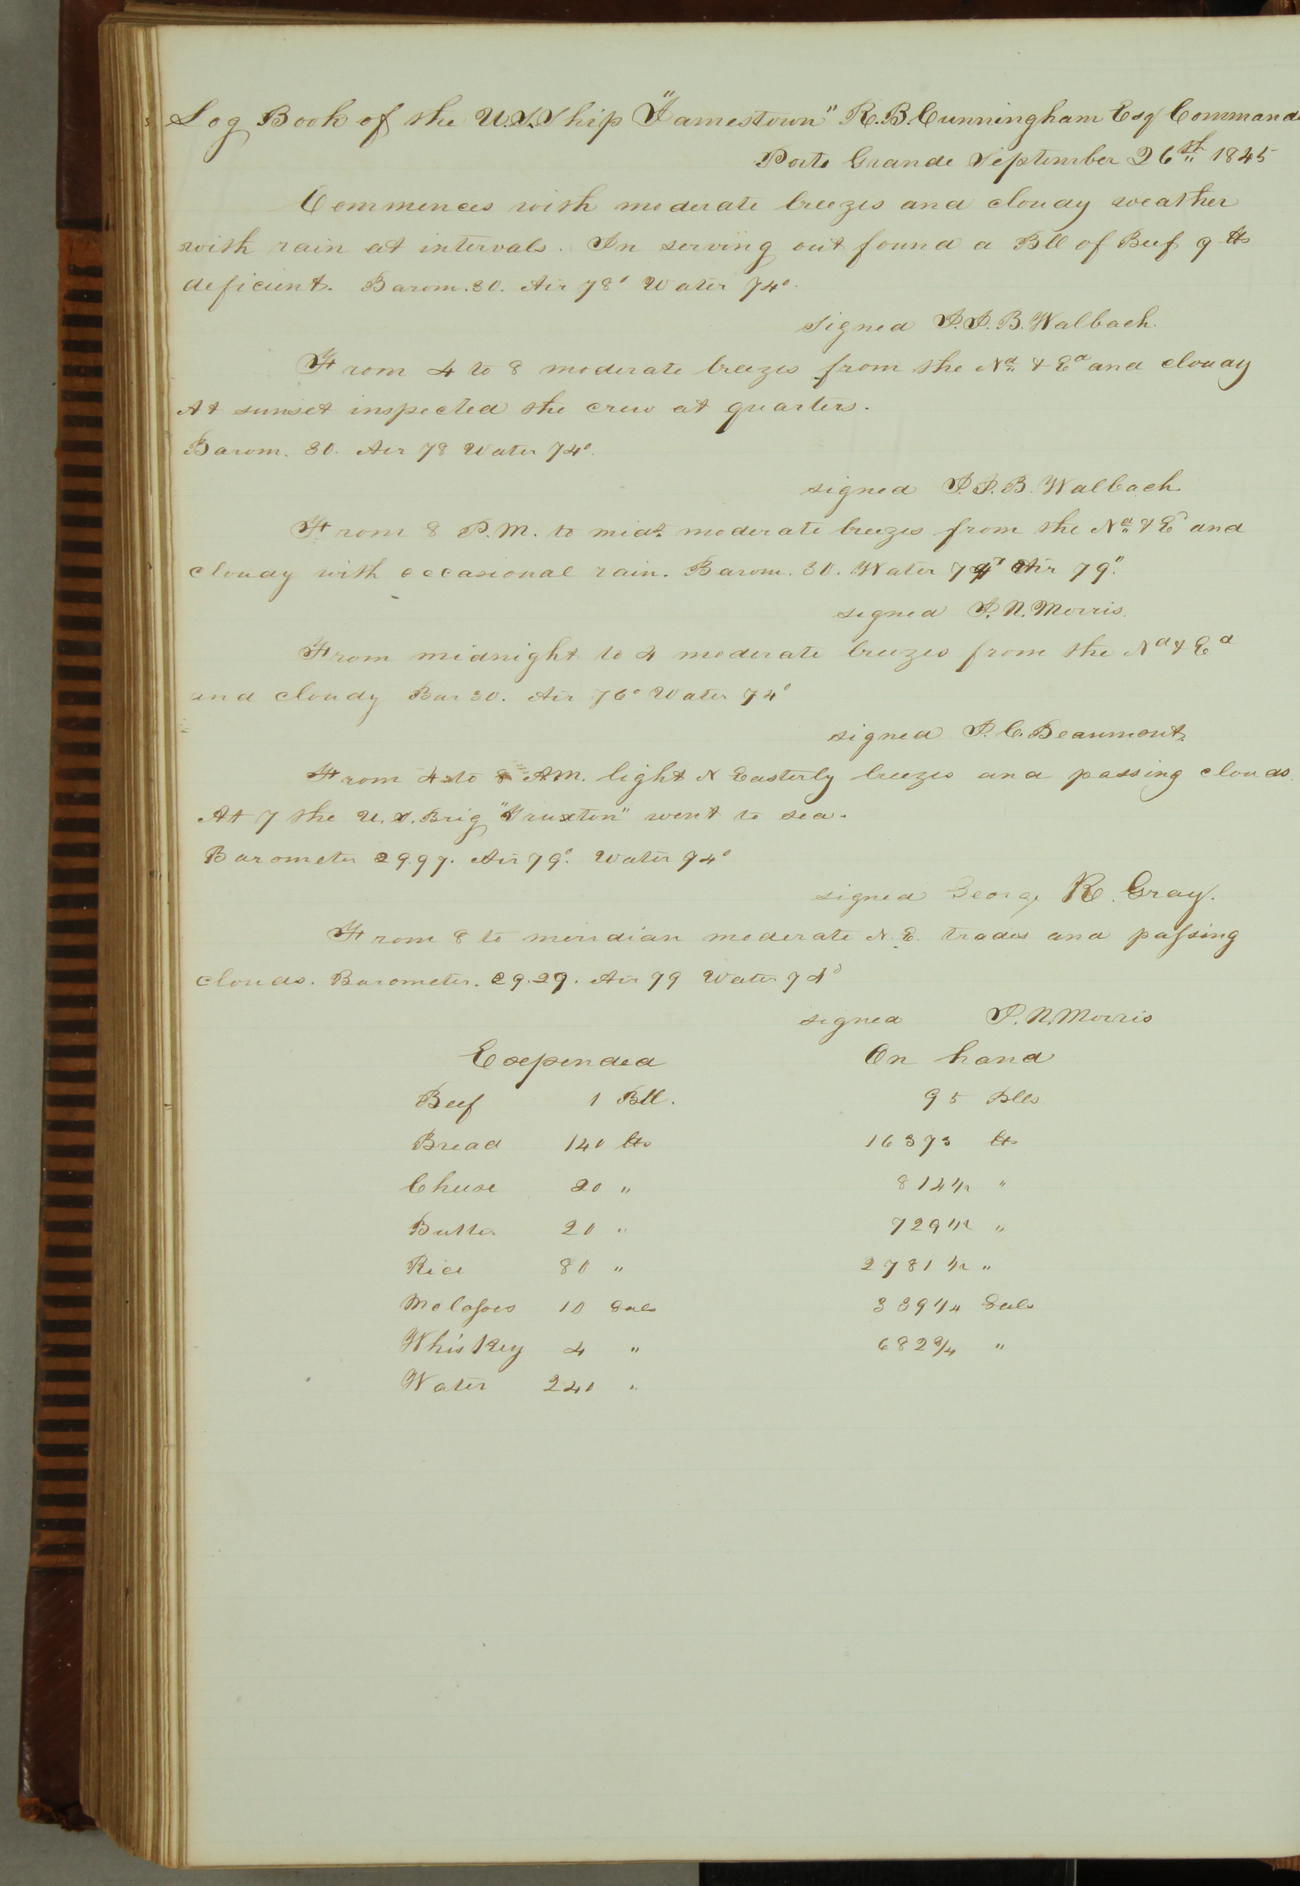 Log Book of the U.S. Ship "Jamestown" R.B. Cunningham Esq Command
Porto Grande September 26th 1845
Commences with moderate breezes and cloudy weather
with rain at intervals. In serving out found a Bll of Beef 9 lbs
deficient. Barom. 30. Air 78° Water 74°.
signed J.J.B. Walbach.
From 4 to 8 moderate breezes from the Nd & Ed and cloudy
At sunset inspected the crew at quarters.
Barom. 30. Air 78 Water 74°.
signed J.J.B. Walbach
From 8 P.M. to midt moderate breezes from the Nd & E and
cloudy with occasional rain. Barom. 30. Water 74° Air 79°.
signed I.N. Morris.
From midnight to 4 moderate breezes from the Nd & Ed
and cloudy Bar 30. Air 76° Water 74°
signed J.C. Beaumont.
From 4 to 8 A.M. light N Easterly breezes and passing clouds.
At 7 the U.S. Brig "Truxton" went to sea.
Barometer 29.97. Air 79°. Water 74°
signed George R. Gray.
From 8 to meridian moderate N.E. trades and passing
clouds. Barometer. 29.29. Air 79 Water 74°
signed I.N. Morris
Expended On hand
Beef 1 Bll. 95 Blls
Bread 140 lbs 16373 lbs
Cheese 20 " 814 1/2 "
Butter 20 " 729 1/2 "
Rice 80 " 2781 1/2 "
Molasses 10 Gals 339 1/4 Gals
Whiskey 4 " 682 3/4 "
Water 240 "